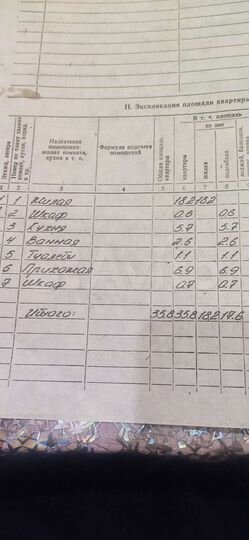 II. Экспликация площади квартиры
В т. ч. площадь
из нее
Этажи, литера
Назначение помещения: жилая комната, кухня и т. п.
Формула подсчета помещений
Общая площадь квартиры
квартиры
жилая
подсобная
1 2 3 4 5 6 7 8
1 1 Жилая 18.2 18.2
2 Шкаф 0.6 0.6
3 Кухня 5.7 5.7
4 Ванная 2.6 2.6
5 Туалет 1.1 1.1
6 Прихожая 6.9 6.9
7 Шкаф 0.7 0.7
Итого: 35.8 35.8 18.2 17.6